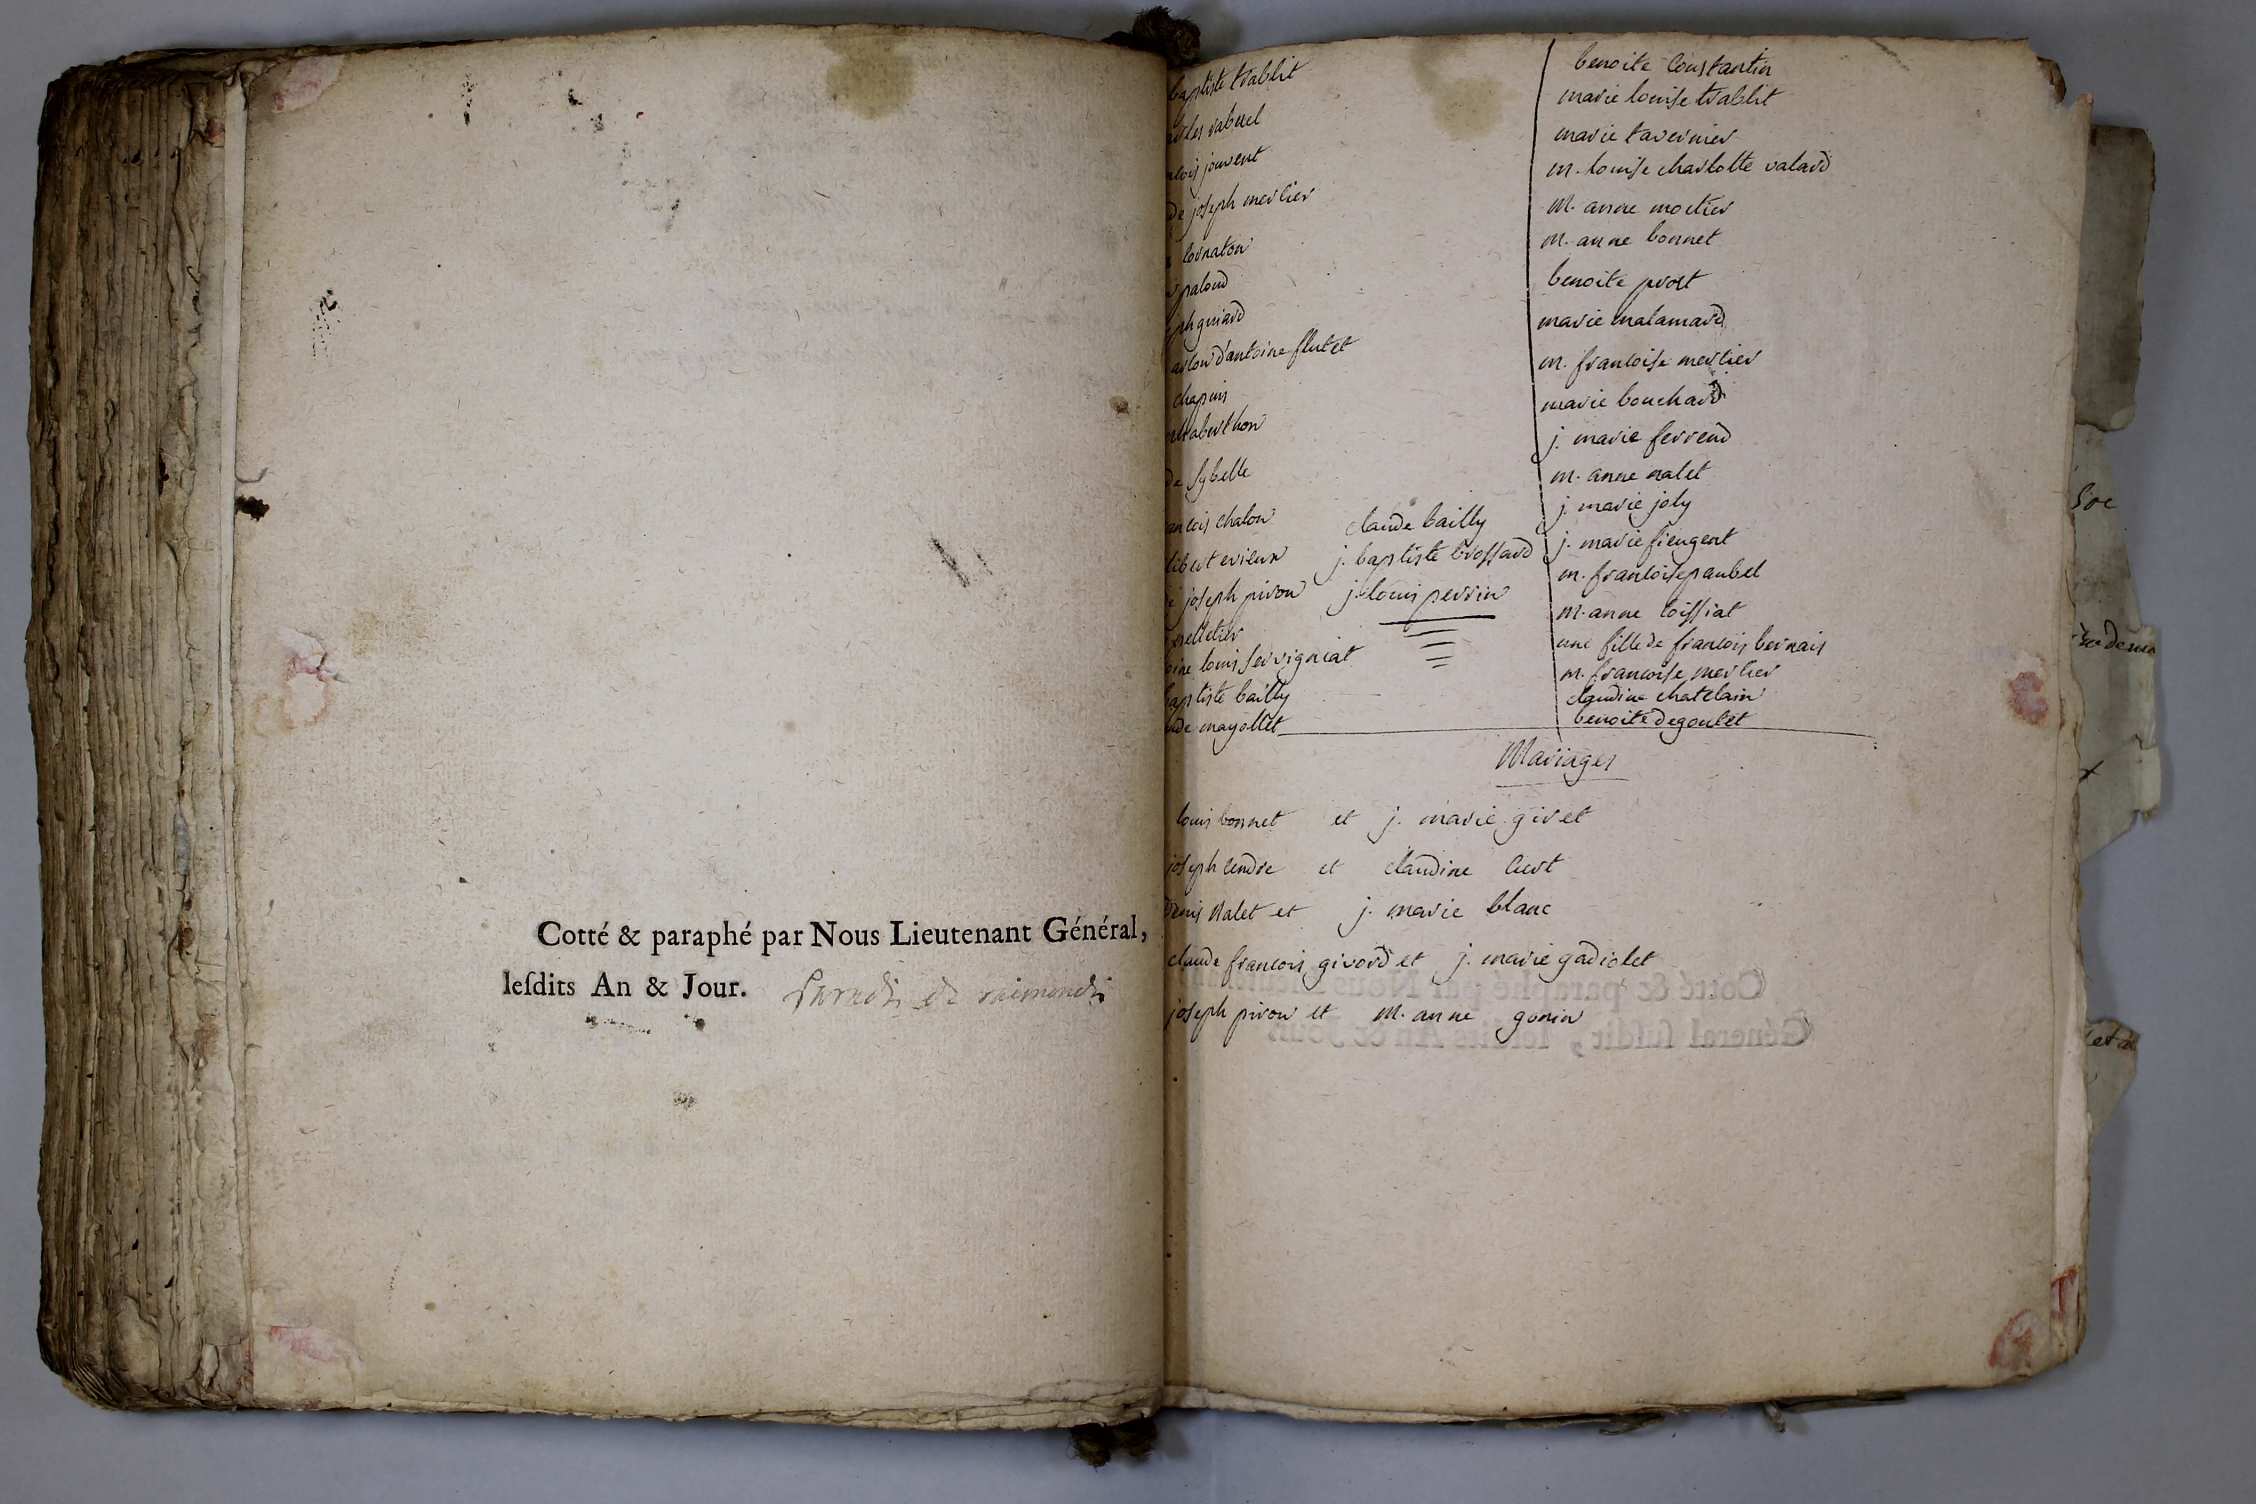 Cotté & paraphé par Nous Lieutenant Général,
lesdits An & Jour. Paradis de raimondis
baptiste trablit
rabuel
jouvent
de joseph merlier
cornaton
paloud
guiard
d'antoine flutet
chapuis
aberthon
de sybelle
ancois chalon
libert evieux
joseph piron
pelletier
oine louis servignat
baptiste bailly
ude mayollet
claude bailly
j. baptiste brossard
j. louis perrin
benoite constantin
marie louise trablit
marie tavernier
m. louise charlotte valard
m. anne moctier
m. anne bonnet
benoite prost
marie malamard
m. francoise merlier
marie bouchard
j. marie ferrend
m. anne nalet
j. marie joly
j. marie fieugent
m. francoise paubel
m. anne loissiat
une fille de francois bernais
m. francoise merlier
claudine chatelain
benoite degoulet
Mariages
louis bonnet et j. marie givet
joseph cendre et claudine curt
denis nalet et j. marie blanc
claude francois givord et j. marie gadiolet
joseph piron et m. anne gonin